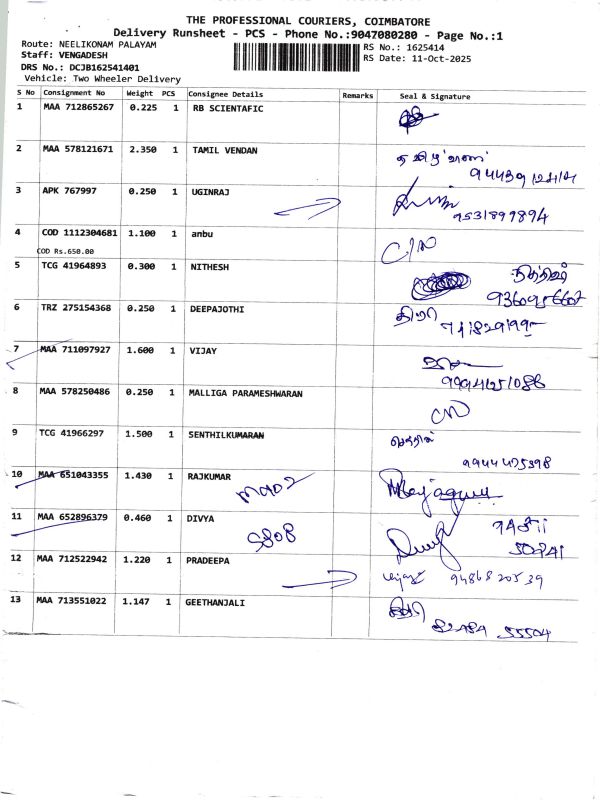 THE PROFESSIONAL COURIERS, COIMBATORE
Delivery Runsheet - PCS - Phone No.:9047080280 - Page No.:1
Route: NEELIKONAM PALAYAM
RS No.: 1625414
Staff: VENGADESH
RS Date: 11-Oct-2025
DRS No.: DCJB162541401
Vehicle: Two Wheeler Delivery
S No Consignment No Weight PCS Consignee Details Remarks Seal & Signature
1 MAA 712865267 0.225 1 RB SCIENTAFIC
2 MAA 578121671 2.350 1 TAMIL VENDAN
3 APK 767997 0.250 1 UGINRAJ
9531899894
4 COD 1112304681 1.100 1 anbu
COD Rs.650.00
5 TCG 41964893 0.300 1 NITHESH
6 TRZ 275154368 0.250 1 DEEPAJOTHI
7 MAA 711097927 1.600 1 VIJAY
8 MAA 578250486 0.250 1 MALLIGA PARAMESHWARAN
9 TCG 41966297 1.500 1 SENTHILKUMARAN
9944475398
10 MAA 651043355 1.430 1 RAJKUMAR
11 MAA 652896379 0.460 1 DIVYA
9808
12 MAA 712522942 1.220 1 PRADEEPA
9486820539
13 MAA 713551022 1.147 1 GEETHANJALI